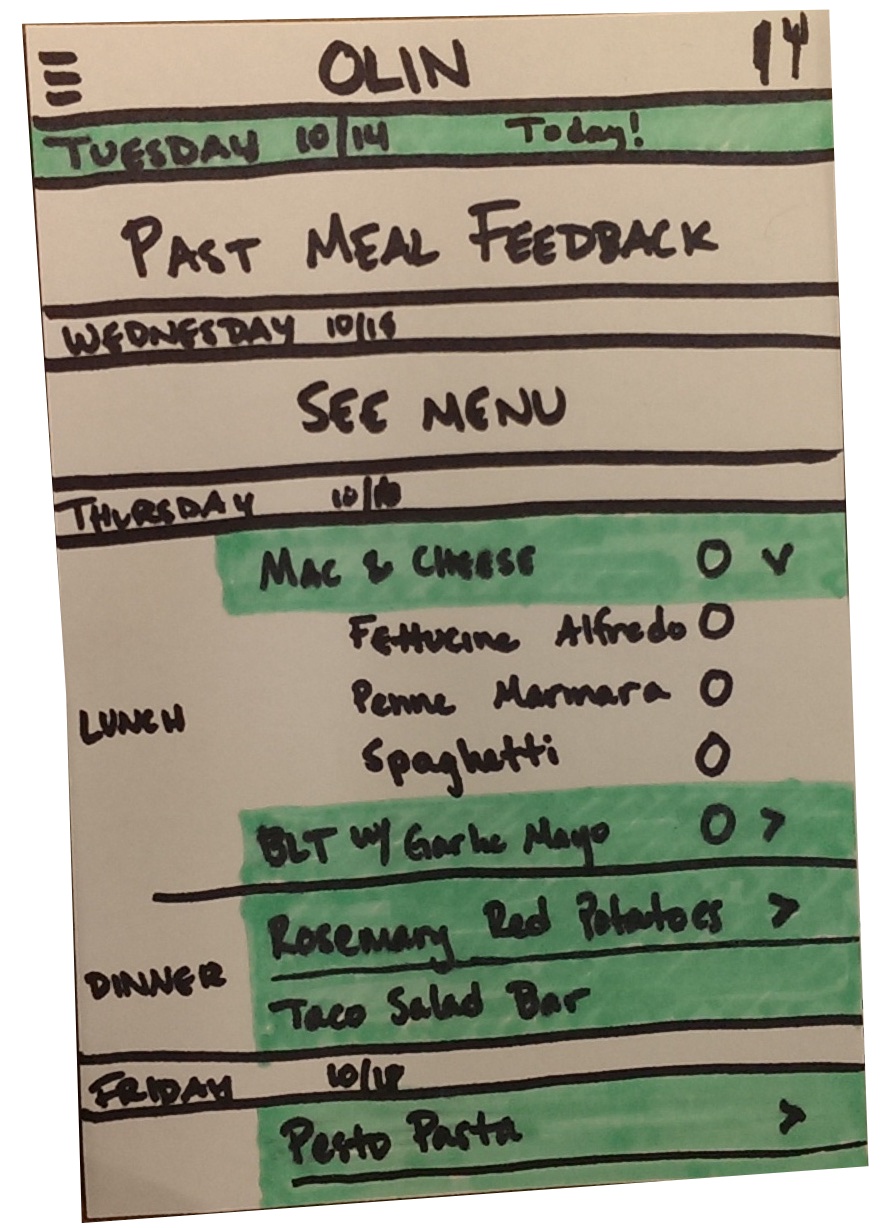 OLIN
TUESDAY 10/14 Today!
PAST MEAL FEEDBACK
WEDNESDAY 10/15
SEE MENU
THURSDAY 10/16
MAC & CHEESE O v
Fettucine Alfredo O
Penne Marmara O
LUNCH
Spaghetti O
BLT w/ Garlic Mayo O >
Rosemary Red Potatoes >
DINNER
Taco Salad Bar
FRIDAY 10/18
Pesto Pasta >